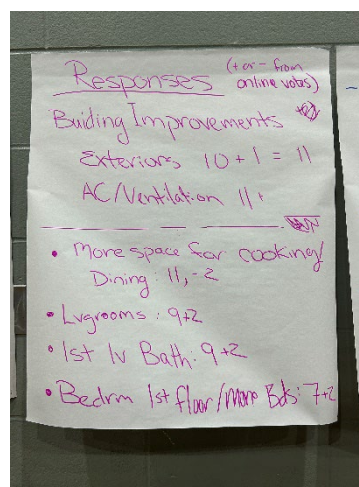 Responses (+ or - from
online votes)
Buiding Improvements
Exteriors 10 + 1 = 11
AC/Ventilation 11 +
• More space for cooking/
Dining: 11, -2
• Lvgrooms: 9+2
• 1st lv Bath: 9+2
• Bedrm 1st floor/more Bds: 7+2